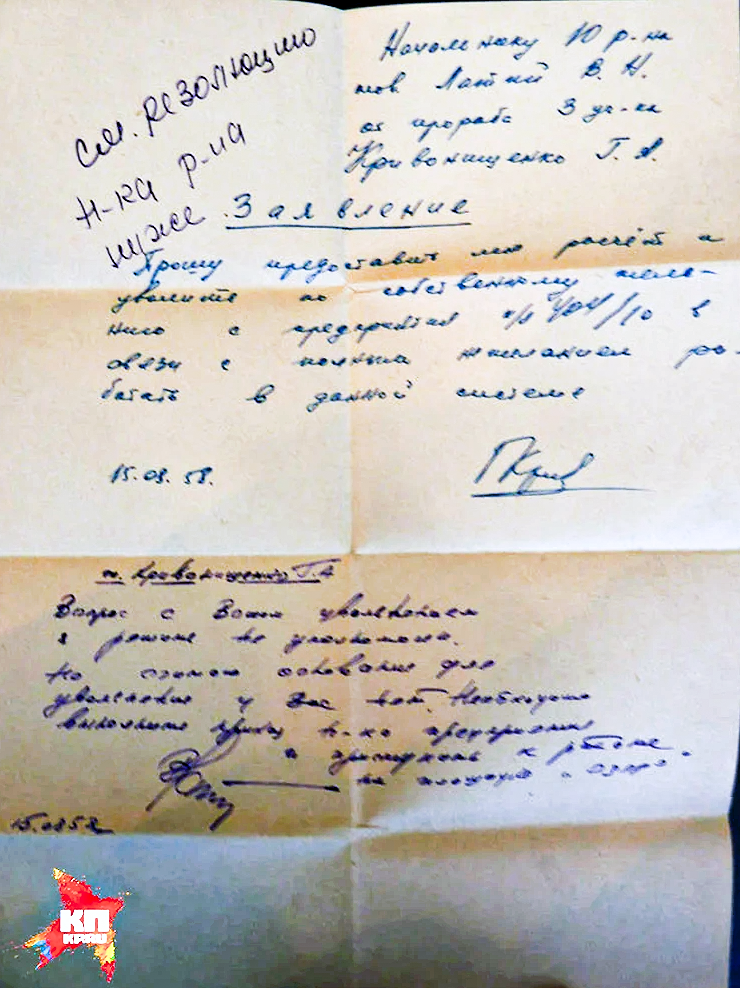 см. резолюцию
н-ка р-на
ниже
Начальнику 10 р-на
тов В. Н.
от прораба 3 уч-ка
Кривонищенко Г. А.
Заявление
Прошу предоставить мне расчёт и
уволить по собственному жела-
нию с предприятия п/я 404/10 в
связи с полным нежеланием ра-
ботать в данной системе
15.08.58.
ГКрив
т. Кривонищенко Г.А
Вопрос с Вашим увольнением
я решать не уполномочен.
Но считаю основание для
увольнения у Вас нет. Необходимо
выполнить приказ н-ка предприятия
и приступить к работе
на площадке
15.08 58
КП
KP.RU